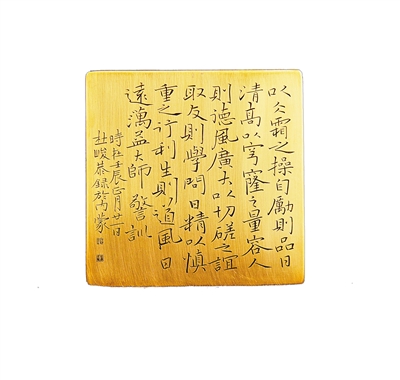 以仌霜之操自勵則品日
清高以穹窿之量容人
則德風廣大以切磋之誼
取友則學問日精以慎
重之行利生則道風日
遠蕅益大師 警訓
時在壬辰正月廿一日
杜峻恭錄於